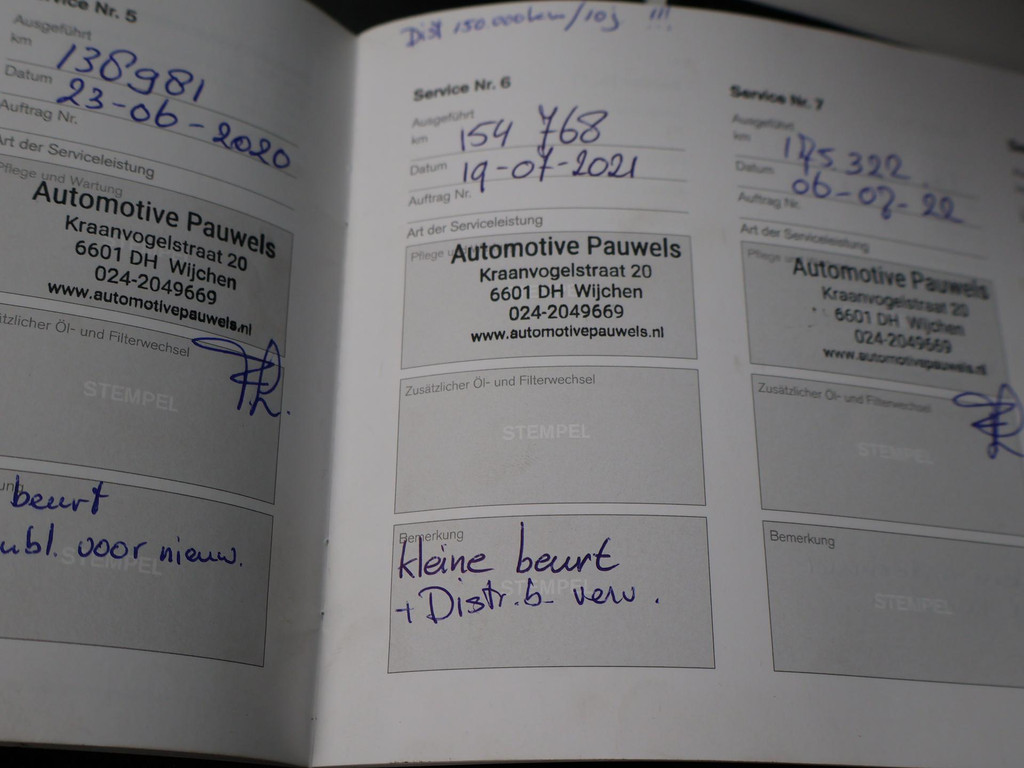 Service Nr. 5
Ausgeführt
km 138981
Datum 23-06-2020
Auftrag Nr.
Art der Serviceleistung
Pflege und Wartung
Automotive Pauwels
Kraanvogelstraat 20
6601 DH Wijchen
024-2049669
www.automotivepauwels.nl
Öl- und Filterwechsel
STEMPEL
beurt
voor nieuw.
STEMPEL
Dist 150.000km/10j !!!
Service Nr. 6
Ausgeführt
km 154 768
Datum 19-07-2021
Auftrag Nr.
Art der Serviceleistung
Pflege
Automotive Pauwels
Kraanvogelstraat 20
6601 DH Wijchen
024-2049669
www.automotivepauwels.nl
Zusätzlicher Öl- und Filterwechsel
STEMPEL
Bemerkung
kleine beurt
STEMPEL
+ Distr.b. verv.
Service Nr. 7
Ausgeführt
km 175.322
Datum 06-07-22
Auftrag Nr.
Art der Serviceleistung
Pflege
Automotive Pauwels
Kraanvogelstraat 20
6601 DH Wijchen
024-2049669
www.automotivepauwels.nl
Zusätzlicher Öl- und Filterwechsel
STEMPEL
Bemerkung
STEMPEL